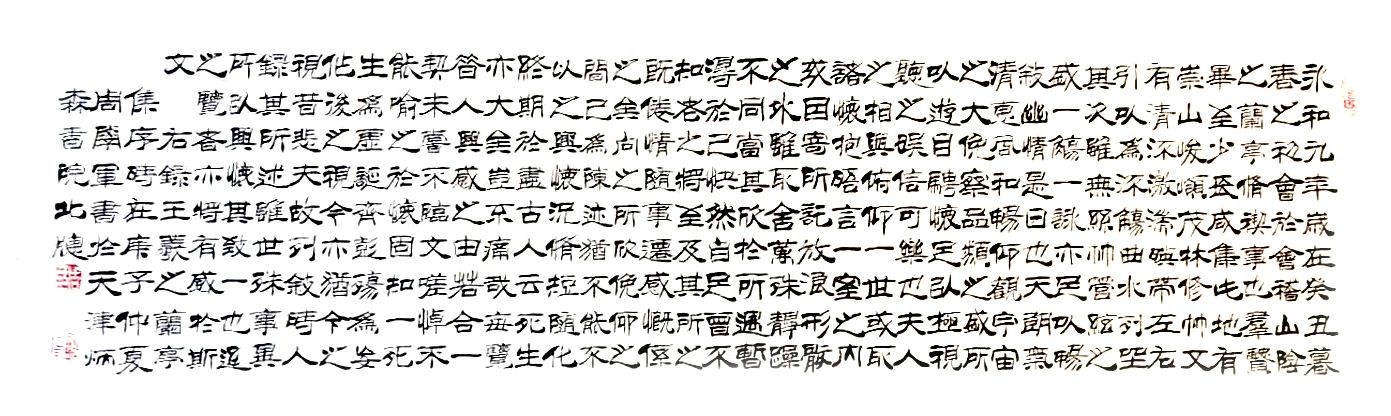 永和九年歲在癸丑暮
春之初會於會稽山陰
之蘭亭脩禊事也羣賢
畢至少長咸集此地有
崇山峻嶺茂林修竹又
有清流激湍映帶左右
引以為流觴曲水列坐
其次雖無絲竹管絃之
盛一觴一詠亦足以暢
敘幽情是日也天朗氣
清惠風和暢仰觀宇宙
之大俛察品類之盛所
以遊目騁懷足以極視
聽之娛信可樂也夫人
之相與俯仰一世或取
諸懷抱晤言一室之內
或因寄所託放浪形骸
之外雖取舍萬殊靜躁
不同當其欣於所遇暫
得於己快然自足曾不
知老之將至及其所之
既倦情隨事遷感慨係
之矣向之所欣俛仰之
間已為陳迹猶不能不
以之興懷況脩短隨化
終期於盡古人云死生
亦大矣豈不痛哉每覽
昔人興感之由若合一
契未嘗不臨文嗟悼不
能喻之於懷固知一死
生為虛誕齊彭殤為妄
作後之視今亦猶今之
視昔悲夫故列敘時人
錄其所述雖世殊事異
所以興懷其致一也
之覽者亦將有感於斯
文 右錄王羲之蘭亭
集序時在庚子仲夏
周學軍書於天津炳
森書院北牕